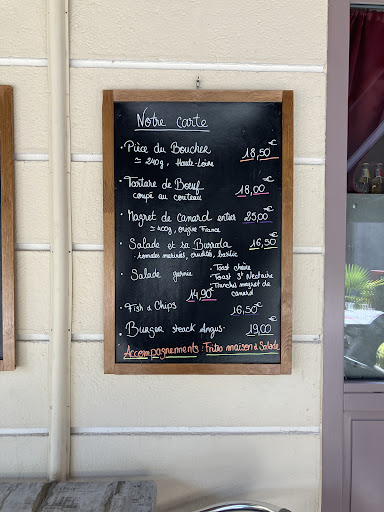 Notre carte
• Pièce du Boucher 18,50€
≃ 240g, Haute-Loire
• Tartare de Boeuf
coupé au couteau 18,00€
• Magret de canard entier 25,00€
≃ 400g, origine France
• Salade et sa Burrata 16,50€
tomates marinées, crudités, basilic
• Salade garnie • Toast chèvre
• Toast St Nectaire
• Tranches magret de
canard
14,90€
• Fish & Chips 16,50€
• Burger steack Angus. 19,00€
Accompagnements : Frites maison & Salade